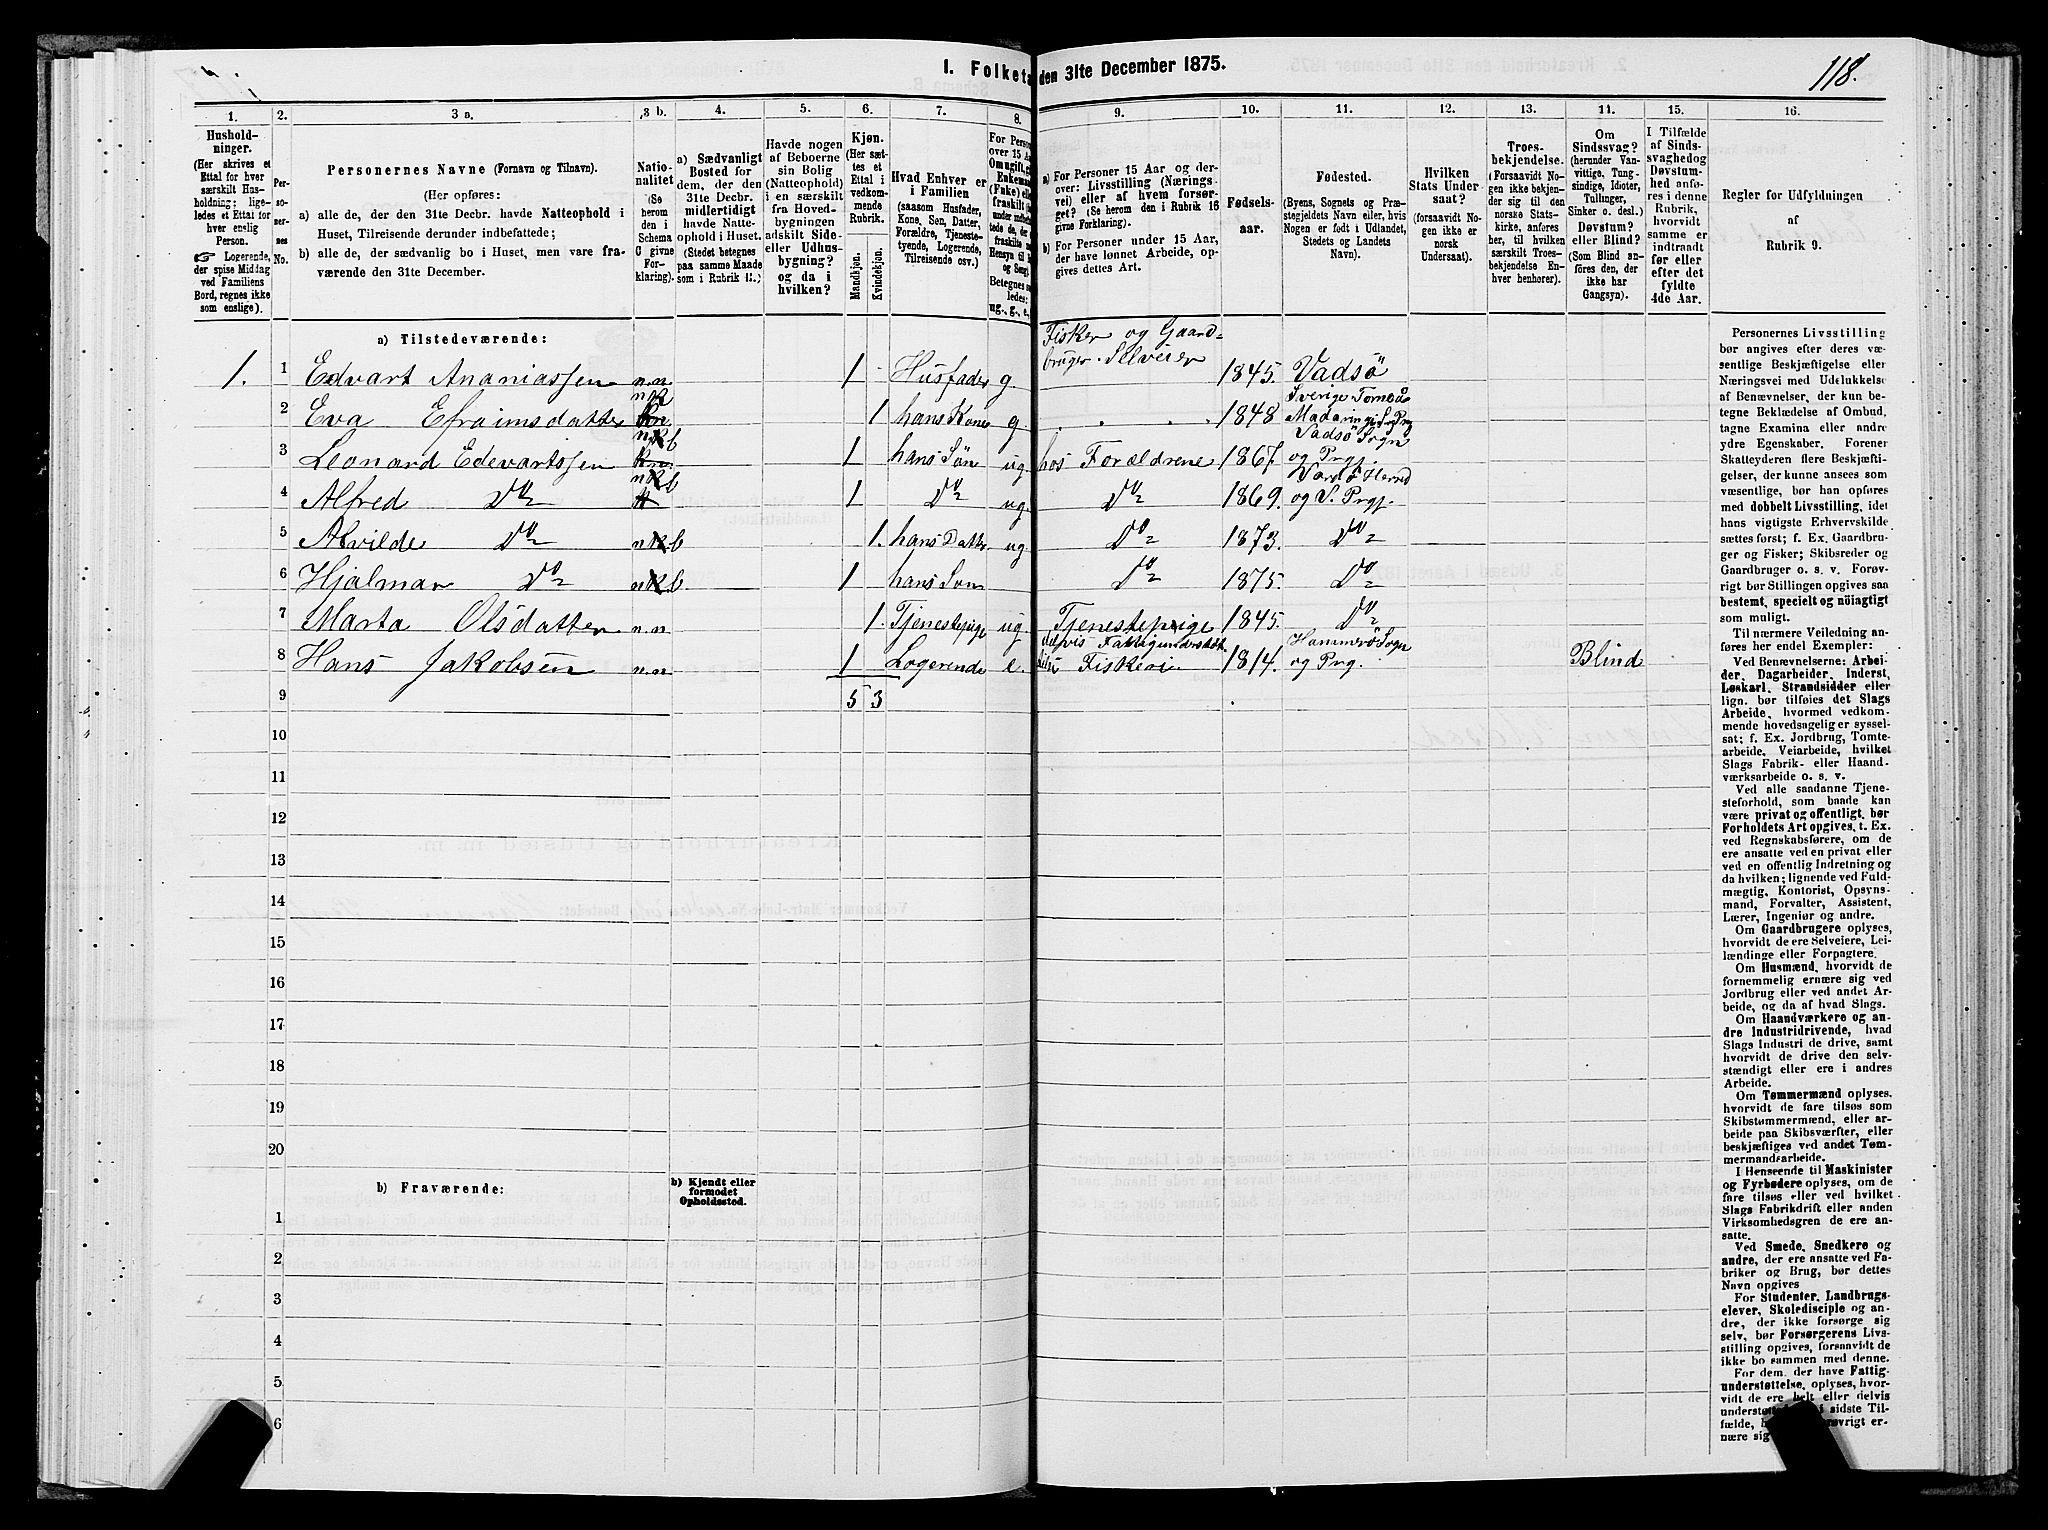 I. Folketæ den 31te December 1875.
118.
1. 2. 3 a. 3 b. 4. 5. 6. 7. 8. 9. 10. 11. 12. 13. 14. 15. 16.
Hushold-
ninger.
(Her skrives et
Ettal for hver
særskilt Hus-
holdning; lige-
ledes et Ettal for
hver enslig
Person.
☞ Logerende,
der spise Middag
ved Familiens
Bord, regnes ikke
som enslige).
Per-
so-
ner-
nes
No.
Personernes Navne (Fornavn og Tilnavn).
(Her opføres:
a) alle de, der den 31te Decbr. havde Natteophold i
Huset, Tilreisende derunder indbefattede;
b) alle de, der sædvanlig bo i Huset, men vare fra-
værende den 31te December.
Natio-
nalitet
(Se
herom
den i
Schema
G givne
For-
klaring).
a) Sædvanligt
Bosted for
dem, der den
31te Decbr.
midlertidigt
havde Natte-
ophold i Huset.
(Stedet betegnes
paa samme Maade
som i Rubrik 11.)
Havde nogen
af Beboerne
sin Bolig
(Natteophold)
i en særskilt
fra Hoved-
bygningen
adskilt Side-
eller Udhus-
bygning?
og da i
hvilken?
Kjøn.
(Her sæt-
tes et
Ettal i
vedkom-
mende
Rubrik.
Mandkjøn.
Kvindekjøn.
Hvad Enhver er
i Familien
(saasom Husfader,
Kone, Søn, Datter,
Forældre, Tjeneste-
tyende, Logerende,
Tilreisende osv.)
For Person
over 15 Aa
Omugift, gi
Enkeman
(Fake) elle
fraskilt
a) For Personer 15 Aar og der-
over: Livsstilling (Nærings-
vei) eller af hvem forsør-
get? (Se herom den i Rubrik 16
givne Forklaring).
b) For Personer under 15 Aar,
der have lønnet Arbeide, op-
gives dettes Art.
Fødsels-
aar.
Fødested.
(Byens, Sognets og Præ-
stegjeldets Navn eller, hvis
Nogen er født i Udlandet,
Stedets og Landets
Navn).
Hvilken
Stats Under-
saat?
(forsaavidt No-
gen ikke er
norsk
Undersaat).
Troes-
bekjendelse.
(Forsaavidt No-
gen ikke bekjen-
der sig til den
norske Stats-
kirke, anføres
her, til hvilken
særskilt Troes-
bekjendelse En-
hver henhører).
Om
Sindssvag?
(herunder Van-
vittige, Tung-
sindige, Idioter,
Tullinger,
Sinker o. desl.)
Døvstum?
eller Blind?
(Som Blind an-
føres den, der
ikke har
Gangsyn).
I Tilfælde
af Sinds-
svaghedog
Døvstum-
hed anfø-
res i denne
Rubrik,
hvorvidt
samme er
indtraadt
før eller
efter det
fyldte
4de Aar.
Regler for Udfyldningen
af
Rubrik 9.
a) Tilstedeværende:
Fisker og Gaard-
bruger. Selveier
1. 1 Edvart Ananiassen n.n. 1 Husfader g 1845. Vadsö
2 Eva Efraimsdatter 1 hans Kone g . . . 1848 Sverige Torneå
3 Leonard Edevartssen 1 hans Sön ug. hos Forældrene 1867. Vadsö Sogn
og Prgj.
4 Alfred Do 1 Do ug. Do 1869. Vardö Herred
og V. Prgj.
5 Alvilde Do 1. hans Datter ug. Do 1873. Do
6 Hjalmar Do 1 hans Sön Do 1875. Do
7 Marta Olsdatter n.n. 1. Tjenestepige ug. Tjenestepige 1845. Do
delvis Fattigunderstöt.
8 Hans Jakobsen n.n. 1 Logerende e. Fiskeri 1814. Hammerö Sogn
og Prg. Blind
9 5 3
10
11
12
13
14
15
16
17
18
19
20
b) Fraværende:
b) Kjendt eller
formodet
Opholdssted.
1
2
3
4
5
6
Personernes Livsstilling
bør angives efter deres væ-
sentlige Beskjæftigelse eller
Næringsvei med Udelukkelse
af Benævnelser, der kun be-
tegne Beklædelse af Ombud,
tagne Examina eller andre
ydre Egenskaber. Forener
Skatteyderen flere Beskjæfti-
gelser, der kunne ansees som
væsentlige, bør han opføres
med dobbelt Livsstilling, idet
hans vigtigste Erhvervskilde
sættes først; f. Ex. Gaardbru-
ger og Fisker; Skibsreder og
Gaardbruger o. s. v. Forøv-
rigt bør Stillingen opgives saa
bestemt, specielt og nöiagtigt
som muligt.
Til nærmere Veiledning an-
føres her endel Exempler:
Ved Benævnelserne: Arbei-
der, Dagarbeider, Inderst,
Løskarl, Strandsidder eller
lign. bør tilføies det Slags
Arbeide, hvormed vedkom-
mende hovedsagelig er syssel-
sat; f. Ex. Jordbrug, Tomte-
arbeide, Veiarbeide, hvilket
Slags Fabrik- eller Haand-
værksarbeide o. s. v.
Ved alle saadanne Tjene-
steforhold, som baade kan
være privat og offentligt, bør
Forholdets Art opgives, f. Ex.
ved Regnskabsførere, om de
ere ansatte ved en privat eller
ved en offentlig Indretning og
da hvilken; lignende ved Fuld-
mægtig, Kontorist, Opsyns-
mand, Forvalter, Assistent,
Lærer, Ingeniør og andre.
Om Gaardbrugere oplyses,
hvorvidt de ere Selveiere, Lei-
lændinge eller Forpagtere.
Om Husmænd, hvorvidt de
fornemmelig ernære sig ved
Jordbrug eller ved andet Ar-
beide, og da af hvad Slags.
Om Haandværkere og an-
dre Industridrivende, hvad
Slags Industri de drive, samt
hvorvidt de drive den selv-
stændigt eller ere i andres
Arbeide.
Om Tømmermænd oplyses,
hvorvidt de fare tilsøs som
Skibstømmermænd, eller ar-
beide paa Skibsværfter, eller
beskjæftiges ved andet Tøm-
mermandsarbeide.
I Henseende til Maskinister
og Fyrbødere oplyses, om de
fare tilsøs eller ved hvilket
Slags Fabrikdrift eller anden
Virksomhedsgren de ere an-
satte.
Ved Smede, Snedkere og
andre, der ere ansatte ved Fa-
briker og Brug, bør dettes
Navn opgives
For Studenter, Landbrugs-
elever, Skoledisciple og an-
dre, der ikke forsørge sig
selv, bør Forsørgerens Livs-
stilling opgives, forsaavidt de
ikke bo sammen med denne.
For dem, der have Fattig-
understøttelse, oplyses, hvor-
vidt de ere helt eller delvis